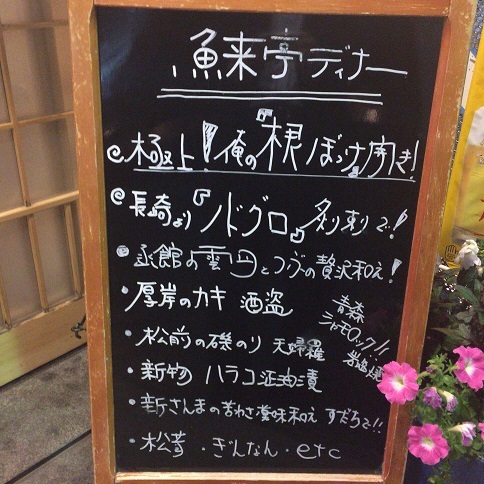 魚来亭ディナー
極上!俺の『根ぼっけ』開き!
長崎より『ノドグロ』炙刺で!
函館の雲丹とつぶの贅沢和え!
・厚岸のカキ 酒盗
青森
シャモロック!!
岩塩焼
・松前の磯のり 天婦羅
・新物 ハラコ 醤油漬
・新さんまの苦わさ薬味和え すだちで!!
・松茸 ・ぎんなん・etc